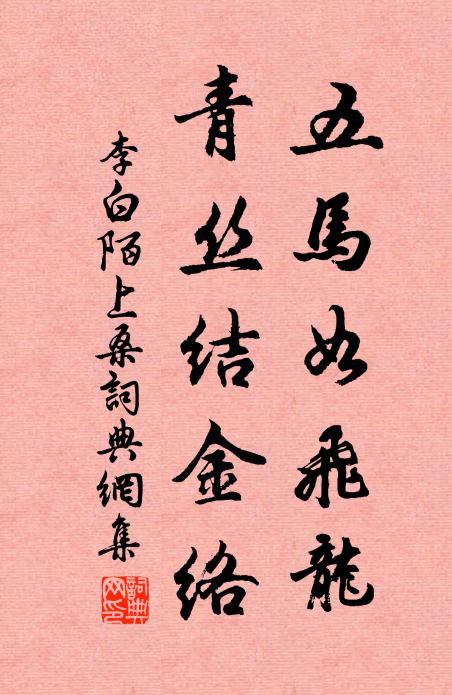 五馬如飛龍
青丝結金络
李白陌上桑詞典網集
詞典網印